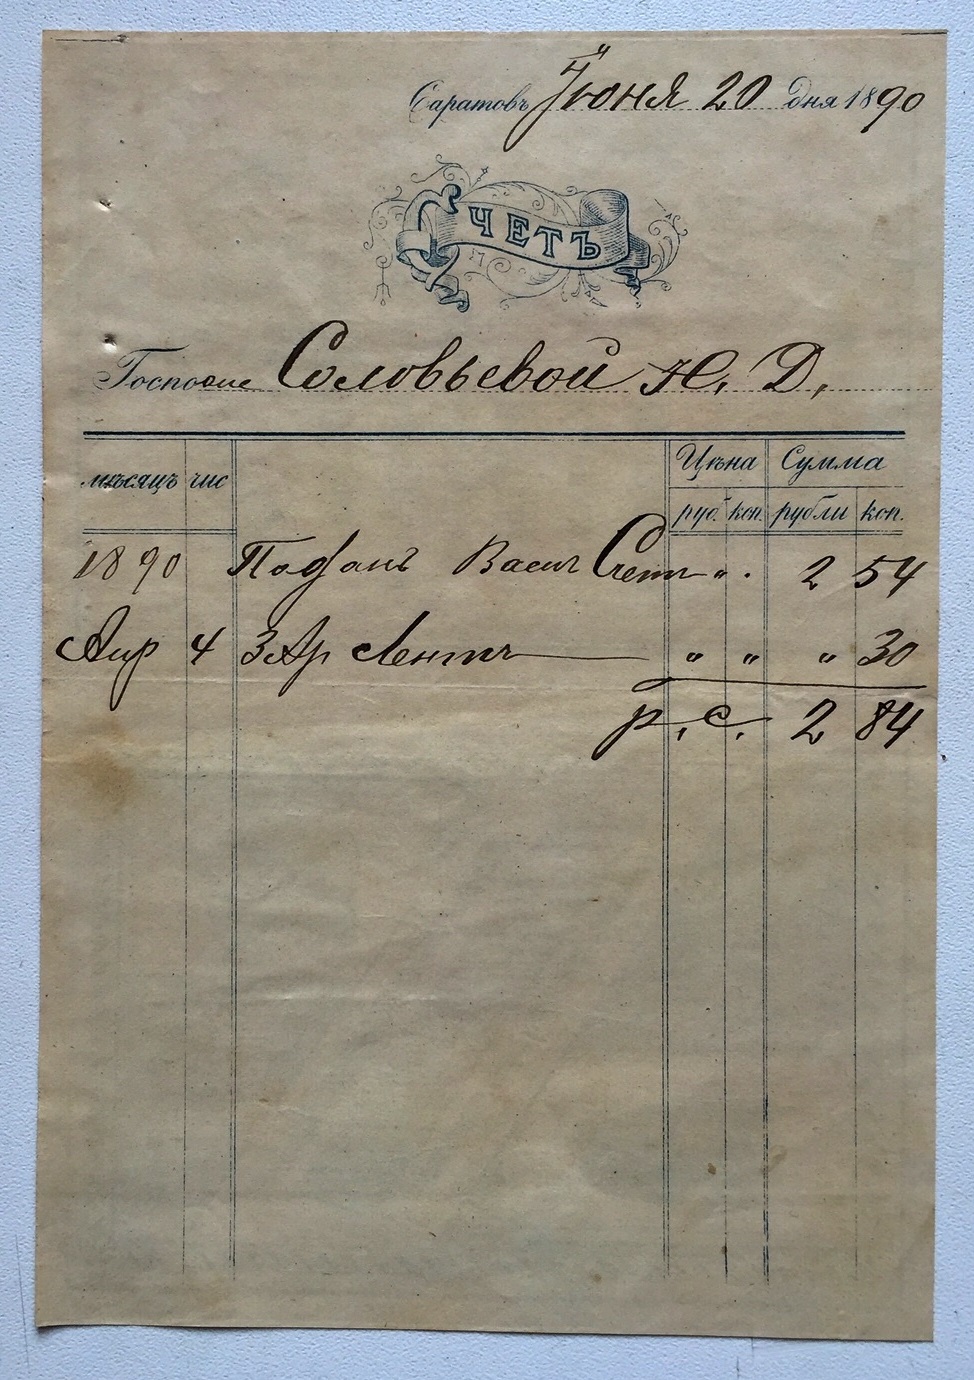 Саратовъ Іюня 20 дня 1890
СЧЕТЪ
Соловьевой Н. Д.
мѣсяцъ чис Цѣна Сумма
руб. коп. рубли коп.
1890 Поданъ Вамъ Счетъ „ . 2 54
Апр 4 3 Ар Ленты „ „ „ 30
р. с. 2 84